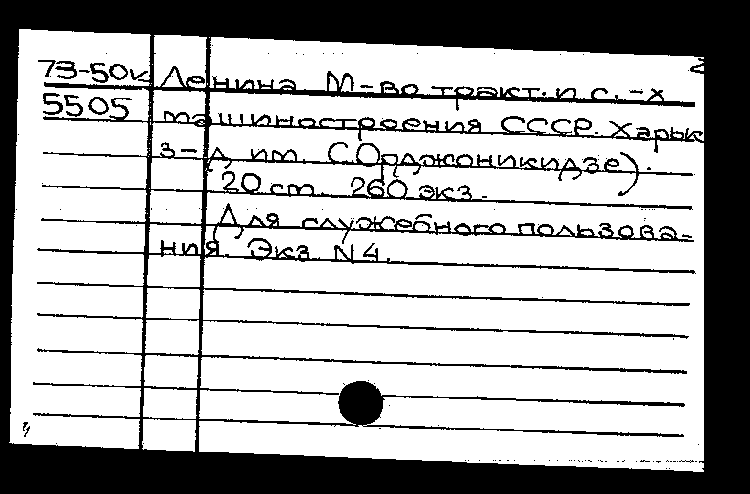 73-50к Ленина М-во тракт. и с.-х
5505 машиностроения СССР. Харьк
з-д им. С.Орджоникидзе).
20 см. 260 экз.
Для служебного пользова-
ния. Экз. N 4.